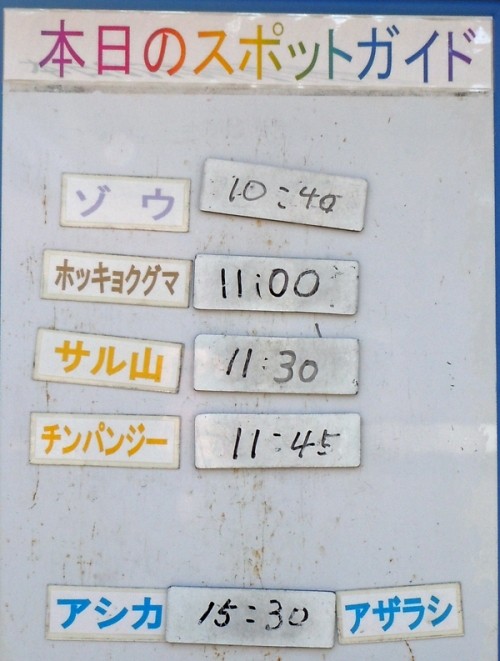 本日のスポットガイド
ゾウ 10:40
ホッキョクグマ 11:00
サル山 11:30
チンパンジー 11:45
アシカ 15:30 アザラシ